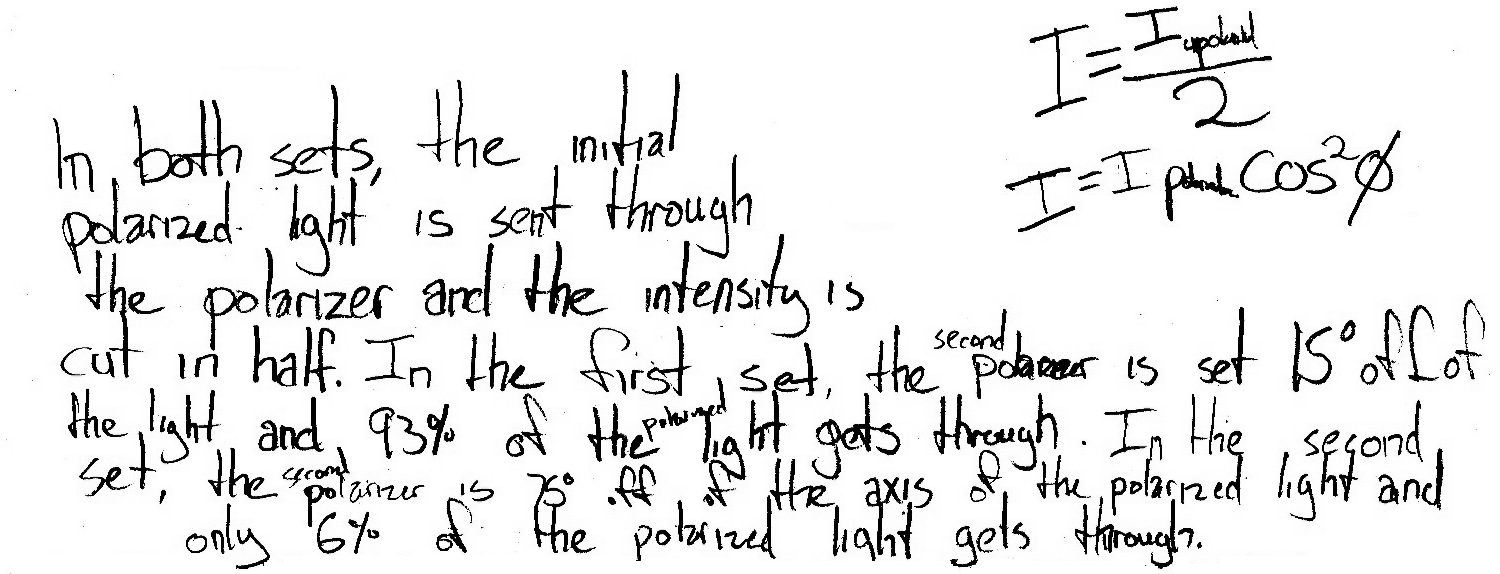 I = I unpolarized / 2
I = I polarized cos²φ
In both sets, the initial
polarized light is sent through
the polarizer and the intensity is
cut in half. In the first set, the second polarizer is set 15° off of
the light and 93% of the polarized light gets through. In the second
set, the second polarizer is 75° off of the axis of the polarized light and
only 6% of the polarized light gets through.